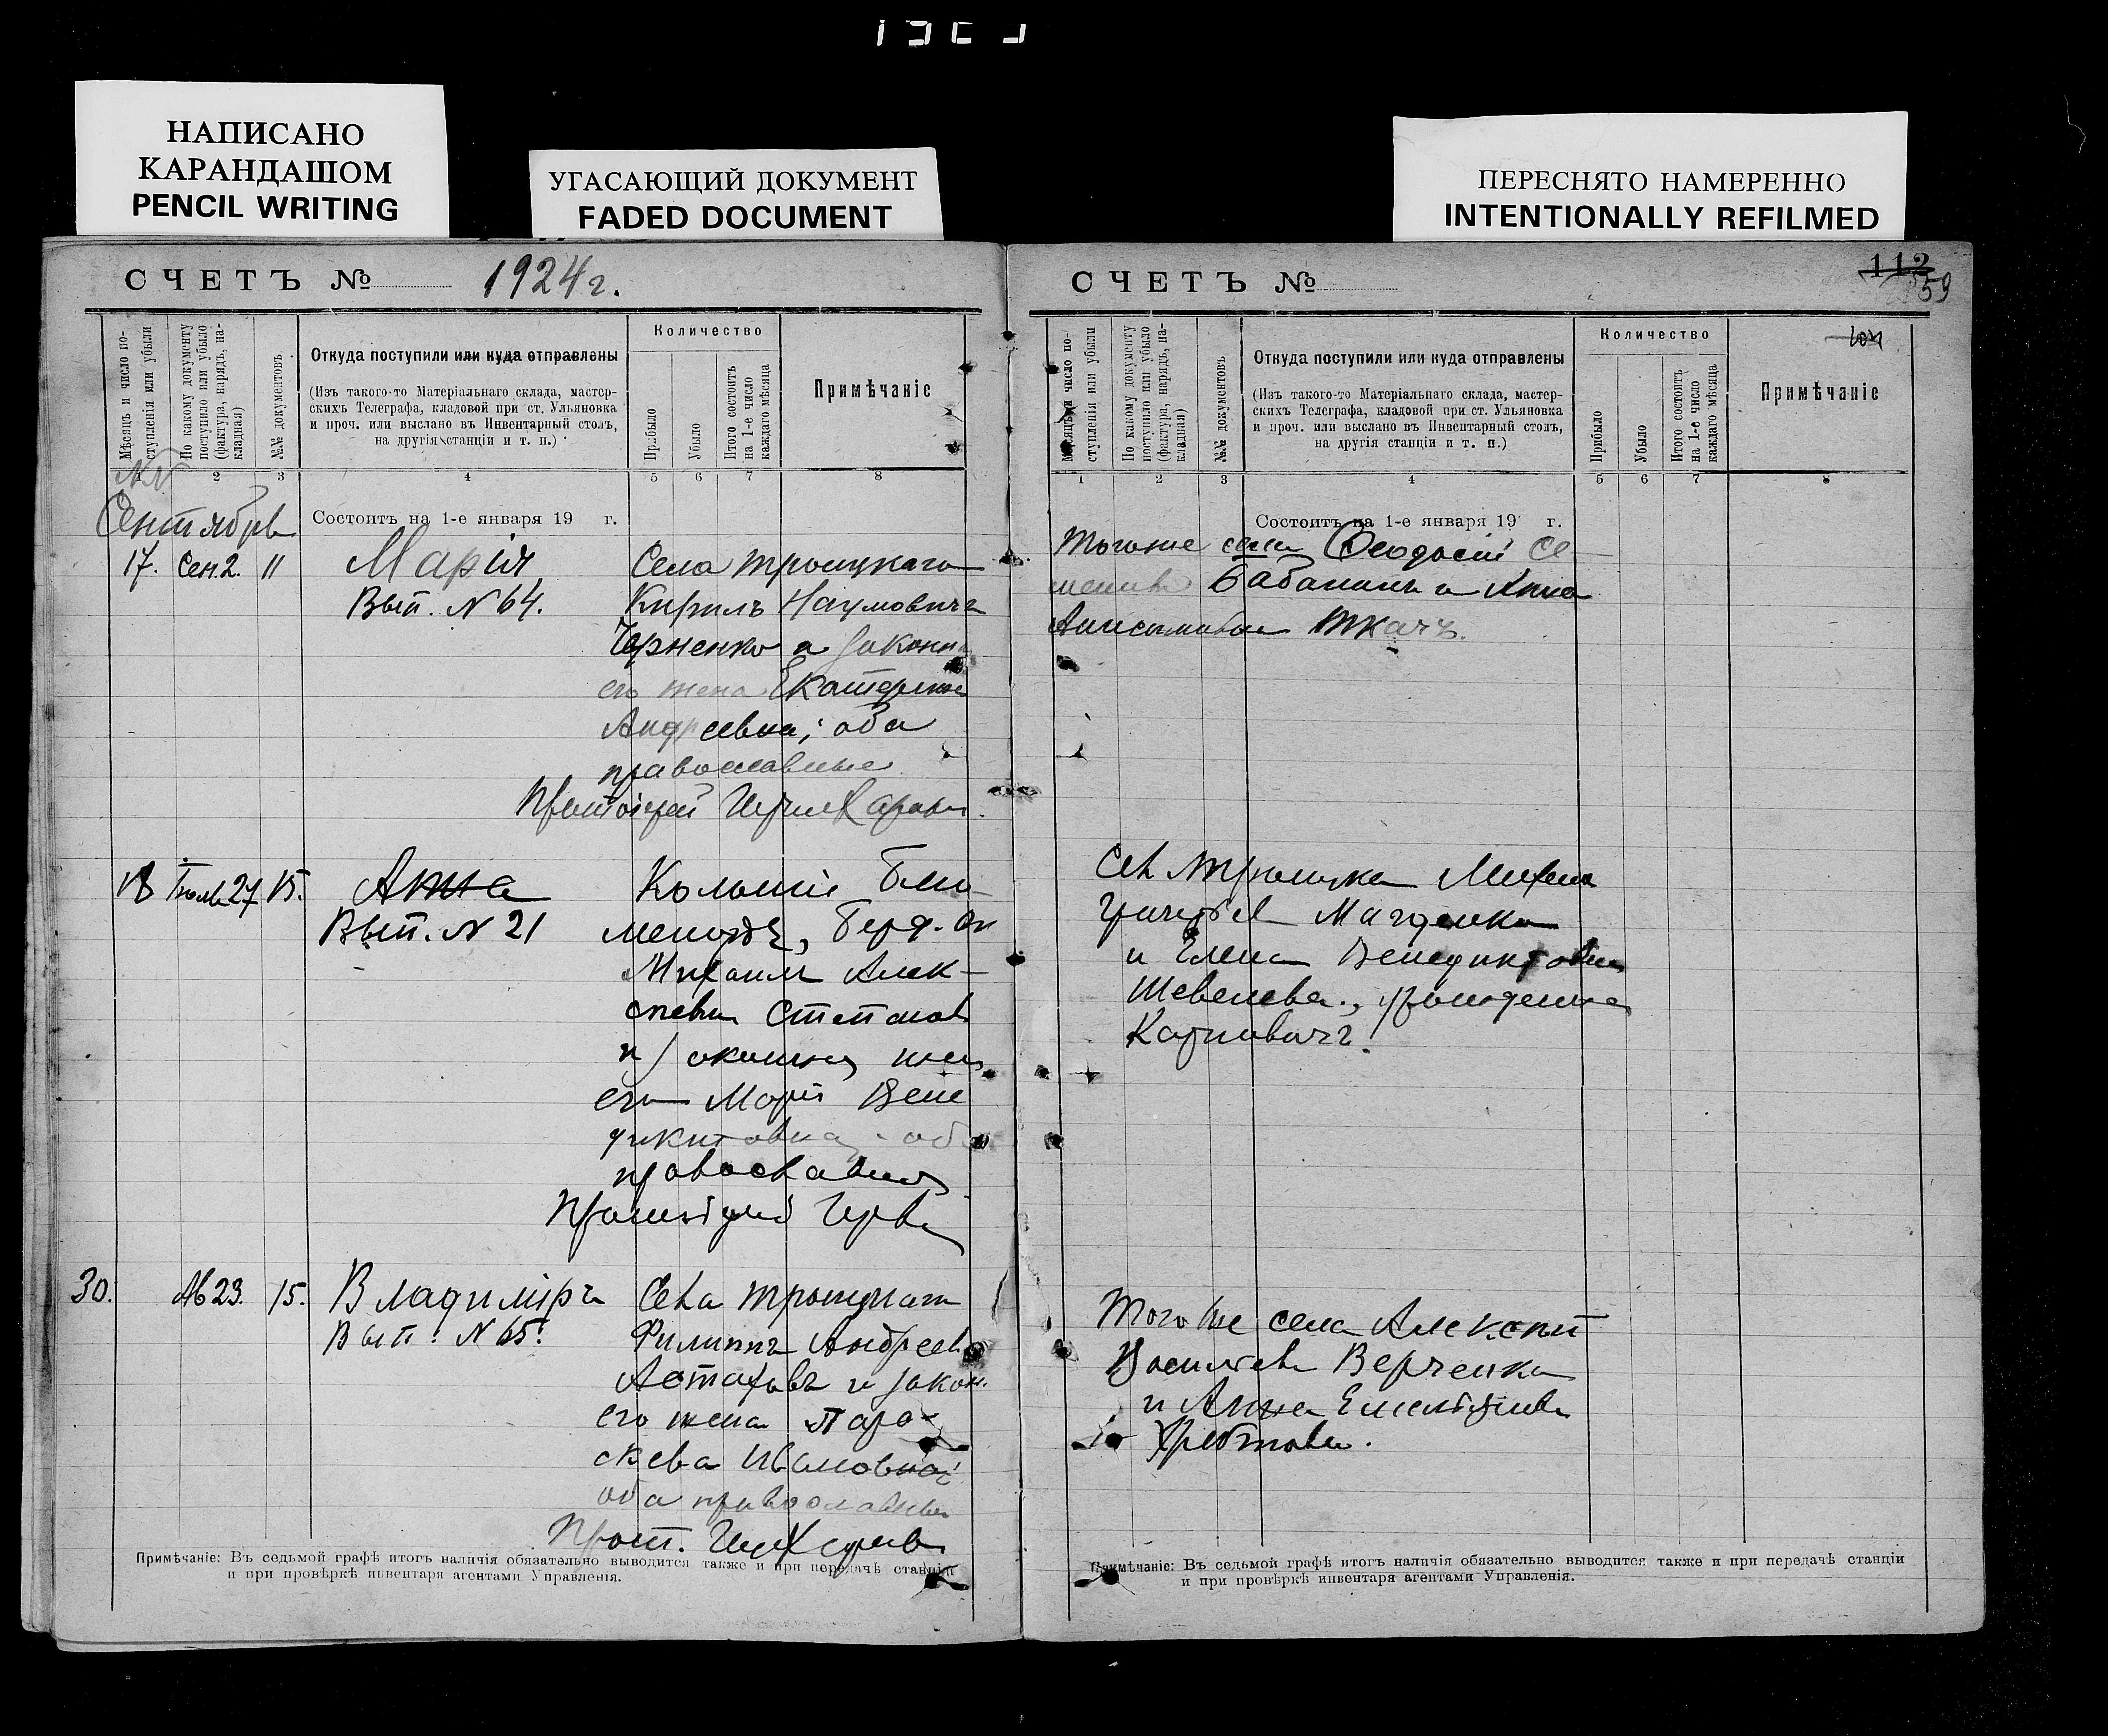 НАПИСАНО
КАРАНДАШОМ
PENCIL WRITING
УГАСАЮЩИЙ ДОКУМЕНТ
FADED DOCUMENT
ПЕРЕСНЯТО НАМЕРЕННО
INTENTIONALLY REFILMED
СЧЕТЪ № 1924 г.
Мѣсяцъ и число по-
ступленія или убыли
По какому документу
поступило или убыло
(фактура, нарядъ, на-
кладная)
№№ документовъ
Откуда поступили или куда отправлены
(Изъ такого-то Матеріальнаго склада, мастер-
скихъ Телеграфа, кладовой при ст. Ульяновка
и проч. или выслано въ Инвентарный столъ,
на другія станціи и т. п.)
Количество
Прибыло
Убыло
Итого состоитъ
на 1-е число
каждаго мѣсяца
Примѣчаніе
2 3 4 5 6 7 8
Сентябрь
Состоитъ на 1-е января 19 г.
17. Сен. 2. 11 Марія Села Троицкаго
Вып. N 64. Кирилъ Наумовичъ
Черненко и законн
его жена Екатерина
Андреевна; оба
православные
Протоіерей
18 Іюль 27 15. Анна Колоніи
Вып. N 21
Михаилъ Алек-
сѣевъ Степанов
и законная жен
его Марія Вене
диктовна оба
православные
Протоіерей
30. Ав 23. 15. Владиміръ Села Троицкаго
Вып. N 65. Филиппъ Андреевъ
Астаховъ и закон.
его жена Пара-
скева Ивановна;
оба православные
Прот.
Примѣчаніе: Въ седьмой графѣ итогъ наличія обязательно выводится также и при передачѣ станціи
и при провѣркѣ инвентаря агентами Управленія.
СЧЕТЪ №
112
59
Мѣсяцъ и число по-
ступленія или убыли
По какому документу
поступило или убыло
(фактура, нарядъ, на-
кладная)
№№ документовъ
Откуда поступили или куда отправлены
(Изъ такого-то Матеріальнаго склада, мастер-
скихъ Телеграфа, кладовой при ст. Ульяновка
и проч. или выслано въ Инвентарный столъ,
на другія станціи и т. п.)
Количество
Прибыло
Убыло
Итого состоитъ
на 1-е число
каждаго мѣсяца
Примѣчаніе
1 2 3 4 5 6 7 8
Состоитъ на 1-е января 19 г.
Тогоже села Ѳеодосій Се
меновъ и Анна
Анисимовна Ткачъ.
Села Троицка Михаил
и Елена Венедиктовна
Шевелева., урожденная
Карповичъ.
Того же села Алексѣй
Васильевъ Верченко
и Анна
Примѣчаніе: Въ седьмой графѣ итогъ наличія обязательно выводится также и при передачѣ станціи
и при провѣркѣ инвентаря агентами Управленія.